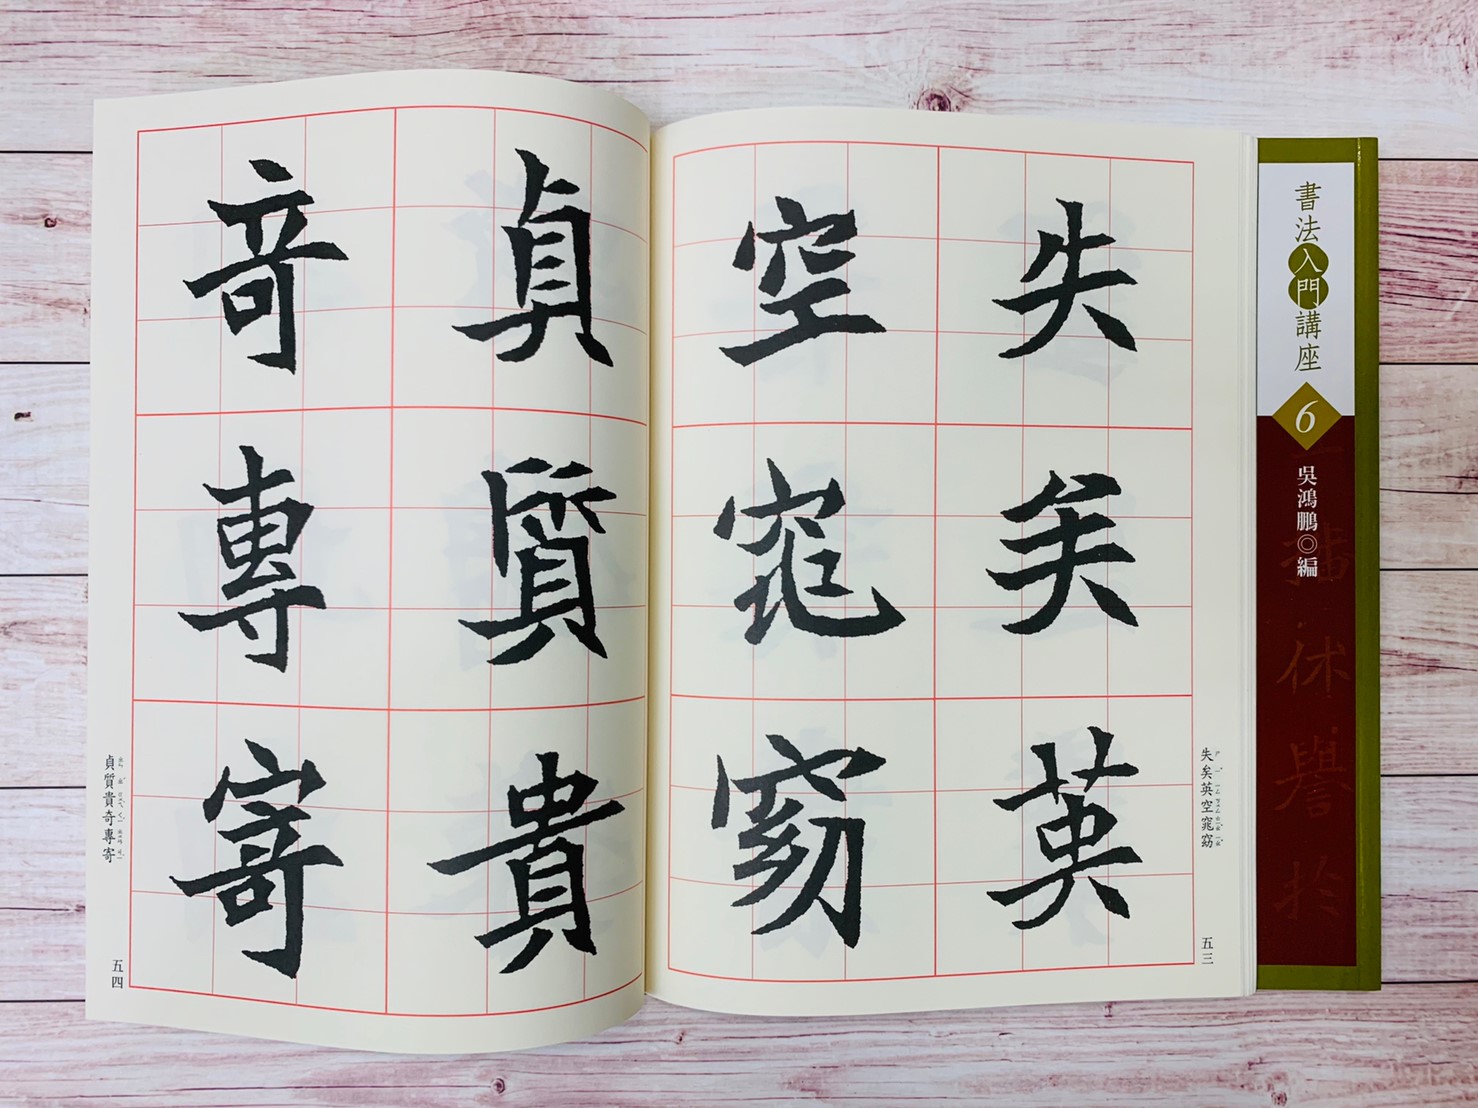 書法入門講座
6
吳鴻鵬◎編
失矣英
空窕窈
失矣英空窕窈
五三
貞質貴
奇專寄
貞質貴奇專寄
五四